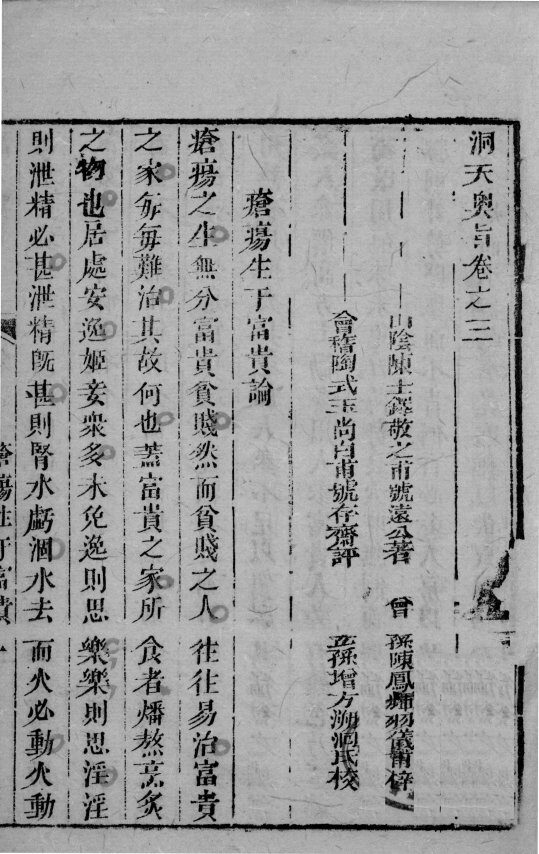 洞天奧旨卷之三
山陰陳士鐸敬之甫號遠公著　曾孫陳鳳輝羽儀甫梓
會稽陶式玉尚白甫號存齋評　孫增方溯洄氏校
瘡瘍生于富貴論
瘡瘍之生無分富貴貧賤然而貧賤之人往往易治富貴
之家每每難治其故何也蓋富貴之家所食者燔熬烹炙
之物也居處安逸姬妾衆多未免逸則思樂樂則思淫淫
則泄精必甚泄精旣甚則腎水虧涸水去而火必動火動
瘡瘍生于富貴 一